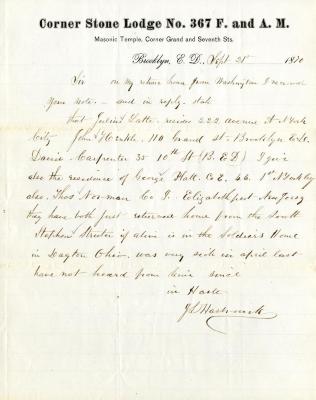 Corner Stone Lodge No. 367 F. and A. M.
Masonic Temple, Corner Grand and Seventh Sts.
Brooklyn, E. D., Sept 28 1880
Sir on my return home from Washington I received
your note - and in reply. state
that Julius Latte. resides 222 avenue A N York
City John Henkle. 110 Grand St - Brooklyn E.D.
David Carpenter 35 10th St (B. E D) I give
also the residence of George Hall. Co E. 46. 1st N York Cty
also Thos Norman Co I. Elizabethport New Jersey
they have both just returned home from the South
Stephen Streeter if alive is in the Soldiers Home
in Dayton Ohio. was very sick in april last
have not heard from him since
in Haste